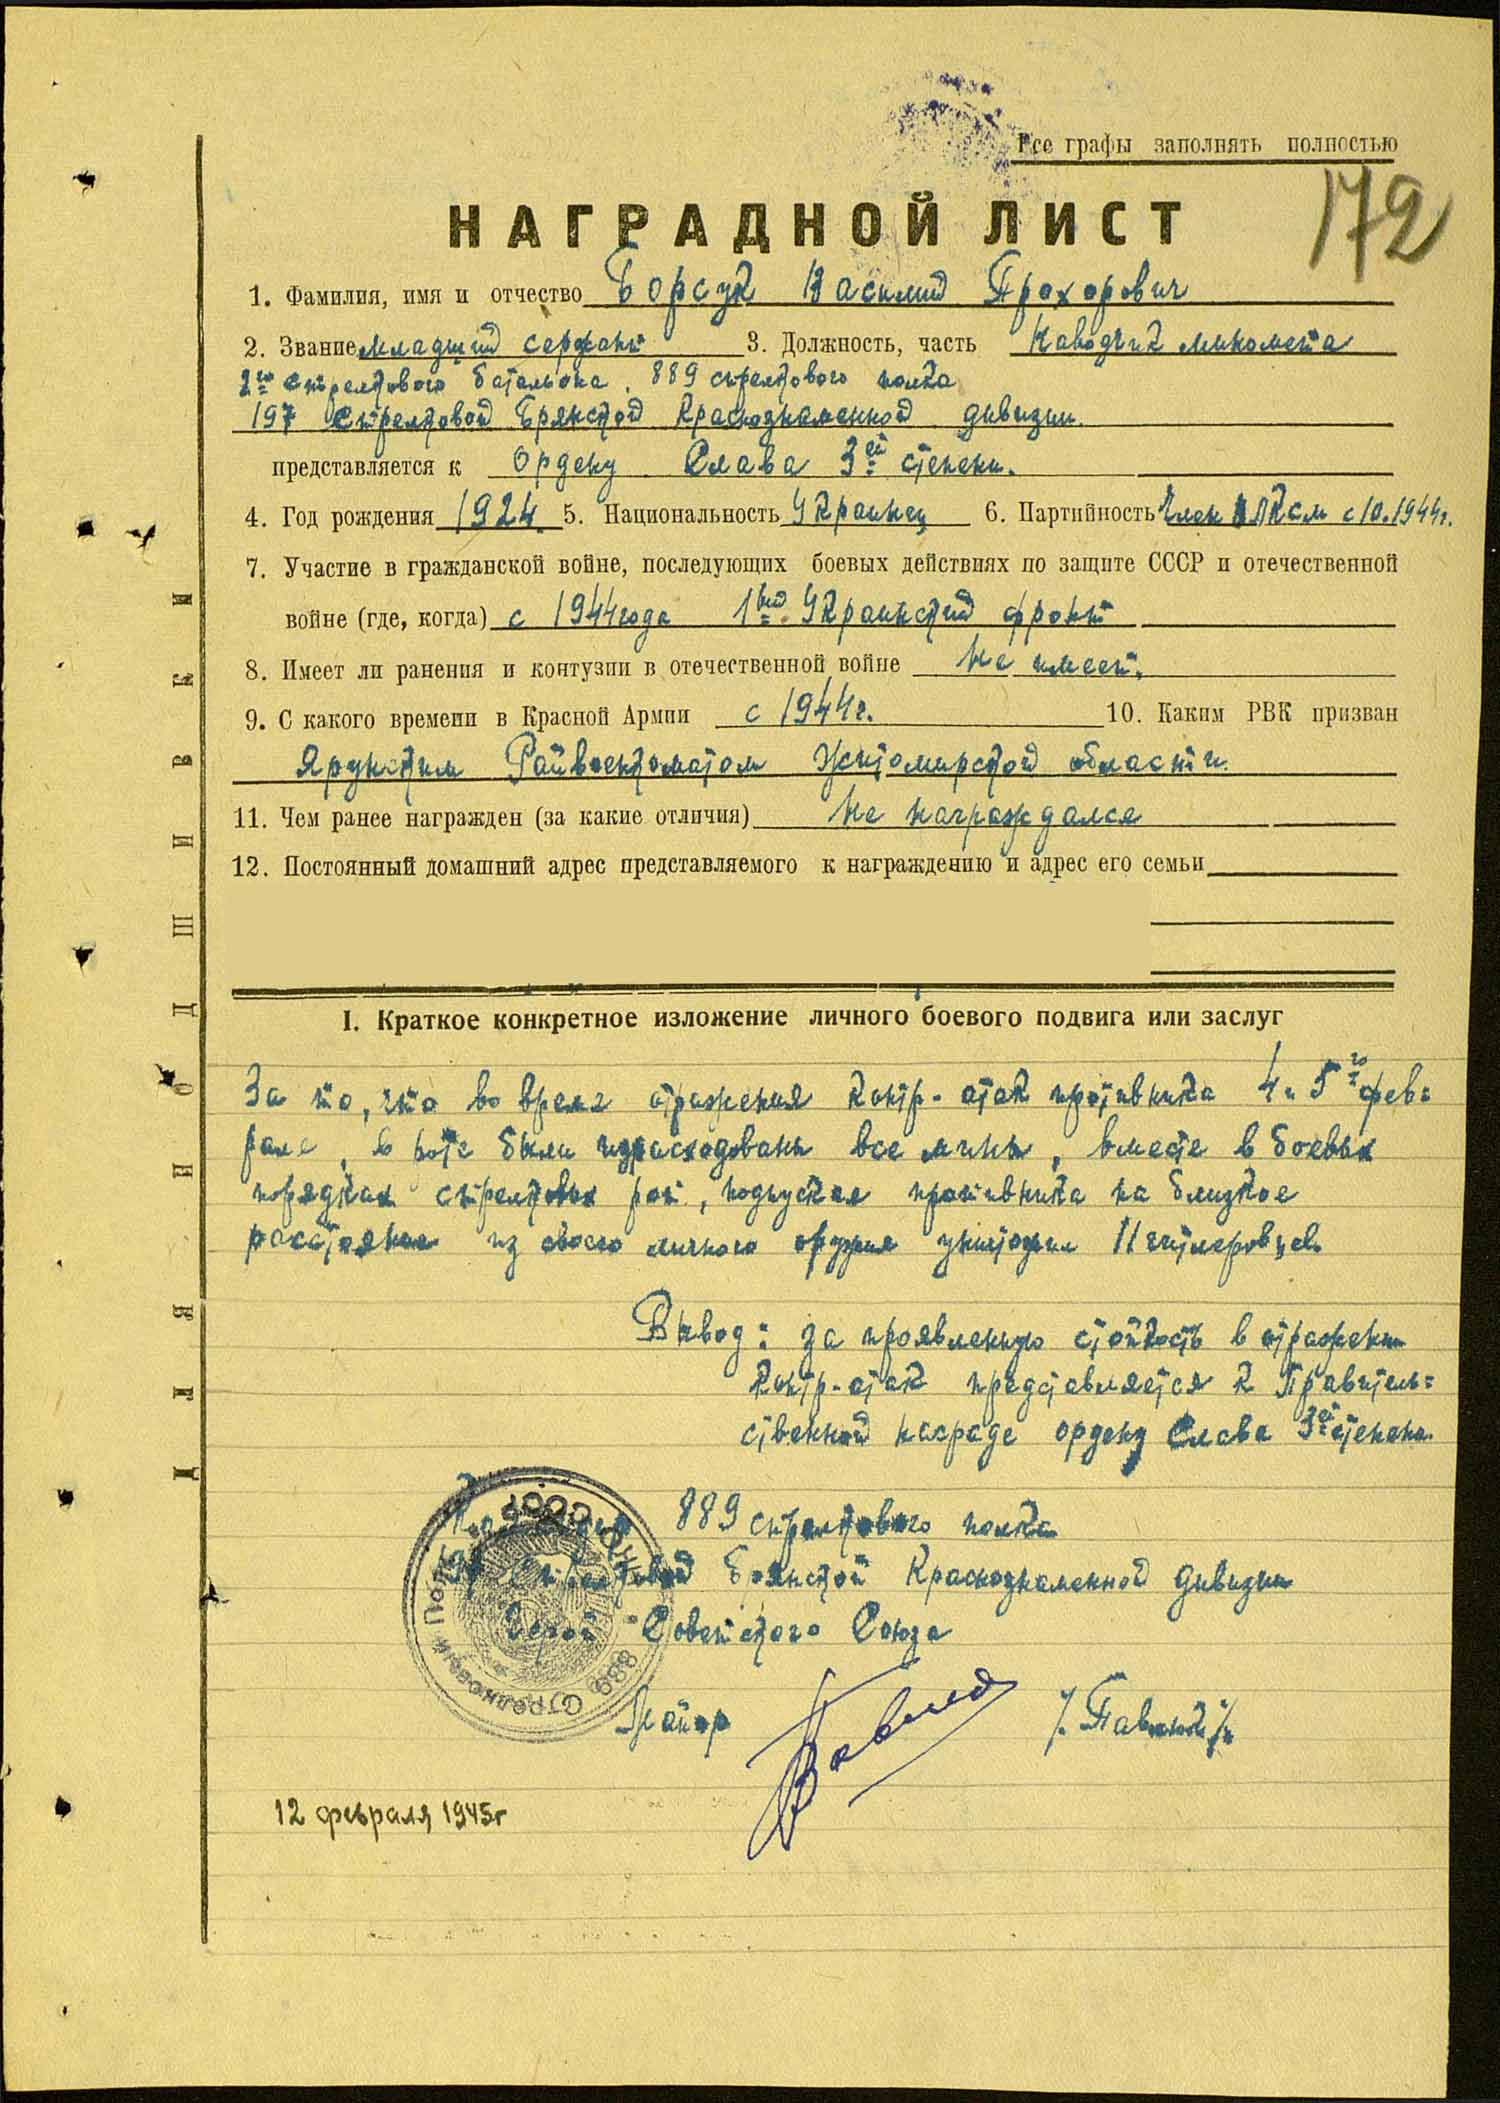 Все графы заполнять полностью
172
НАГРАДНОЙ ЛИСТ
1. Фамилия, имя и отчество Борсук Василий Прохорович
2. Звание младший сержант 3. Должность, часть Наводчик миномета
2го стрелкового батальона, 889 стрелкового полка
197 Стрелковой Брянской Краснознаменной дивизии.
представляется к Ордену Слава 3ей степени.
4. Год рождения 1924. 5. Национальность Украинец 6. Партийность Член ВЛКСМ с 10.1944г.
7. Участие в гражданской войне, последующих боевых действиях по защите СССР и отечественной
войне (где, когда) с 1944 года 1вый Украинский фронт
8. Имеет ли ранения и контузии в отечественной войне Не имеет.
9. С какого времени в Красной Армии с 1944г. 10. Каким РВК призван
Ярунским Райвоенкоматом Житомирской области.
11. Чем ранее награжден (за какие отличия) Не награждался
12. Постоянный домашний адрес представляемого к награждению и адрес его семьи
I. Краткое конкретное изложение личного боевого подвига или заслуг
За то, что во время отражения контр-атак противника 4 и 5го фев=
рале, в роте были израсходованы все мины, вместе в боевых
порядках стрелковых рот, подпуская противника на близкое
расстояние из своего личного оружия уничтожил 11 гитлеровцев.
Вывод: за проявленную стойкость в отражении
контр-атак представляется к Правитель=
ственной награде ордену Слава 3ей степени.
Командир 889 стрелкового полка
197 Стрелковой Брянской Краснознаменной дивизии
Герой Советского Союза
Майор /. Павлюк/
889 Стрелковый Полк
НКО СССР
12 февраля 1945г
ДЛЯ ПОДШИВКИ